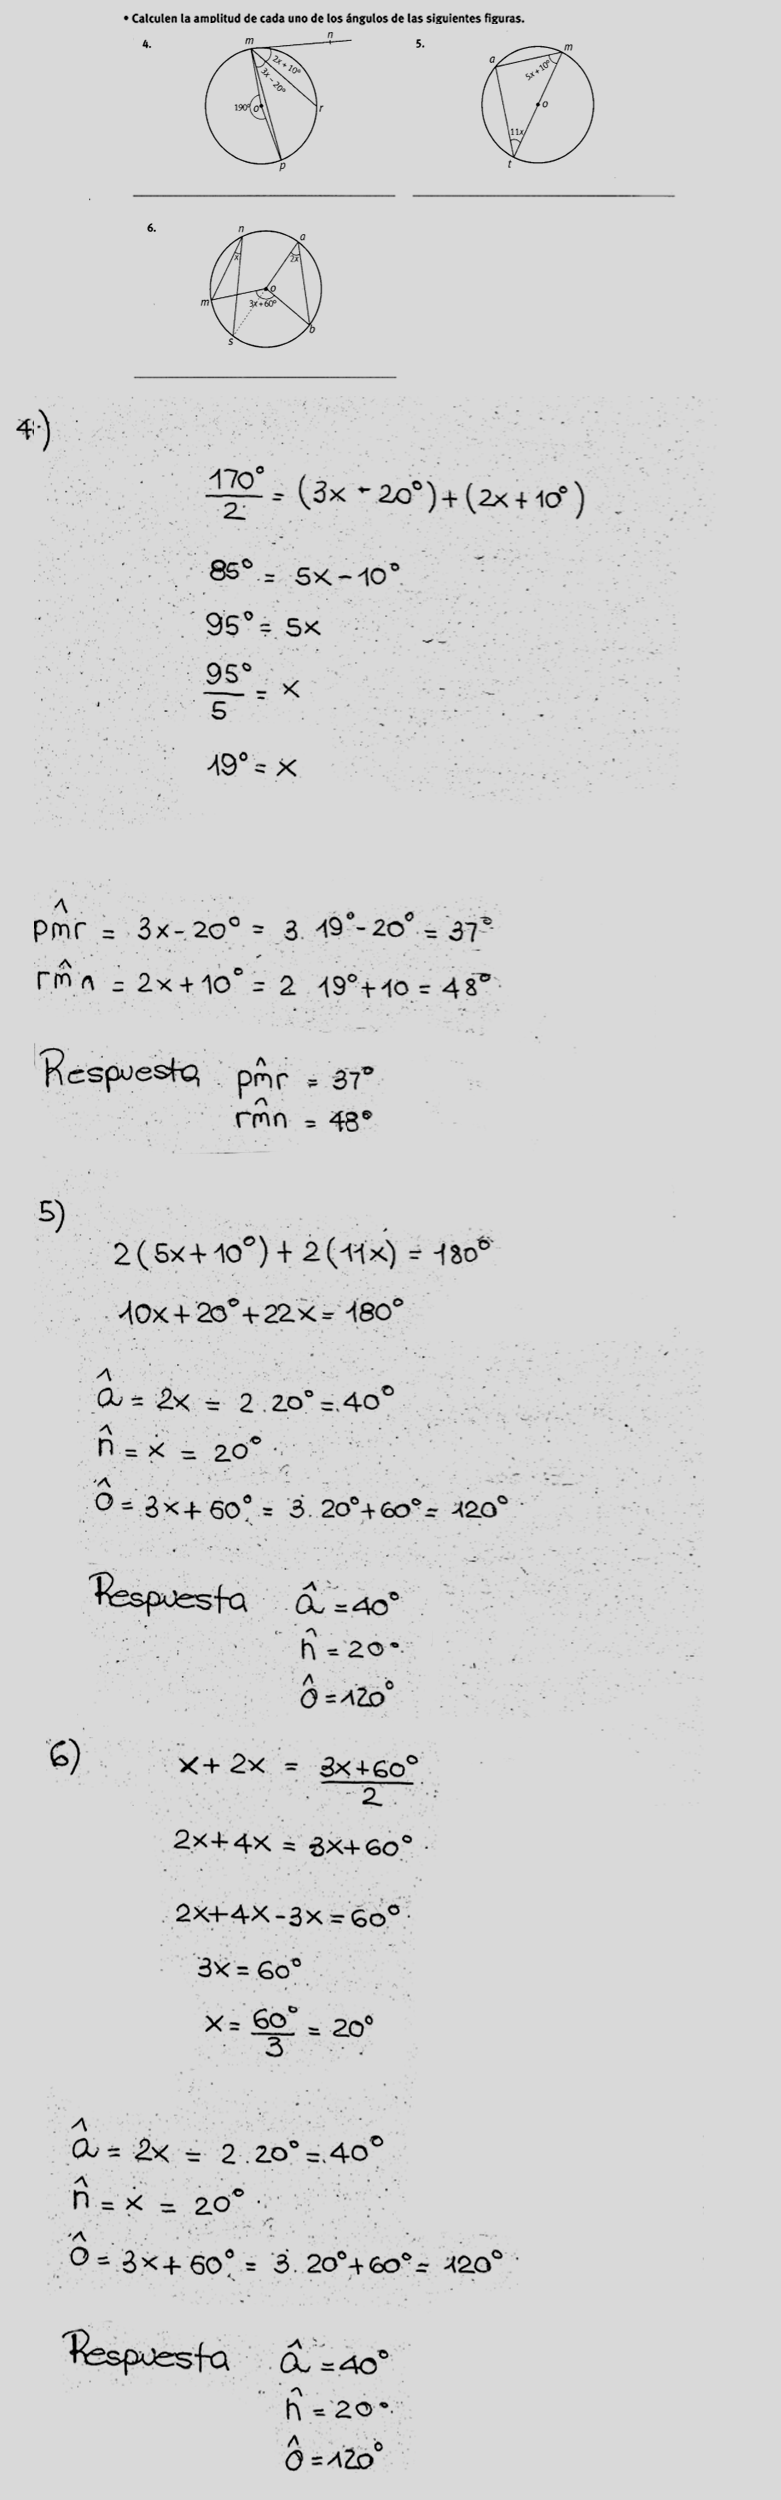 • Calculen la amplitud de cada uno de los ángulos de las siguientes figuras.
4.
m
n
2x+10°
3x-20°
190°
o
r
p
5.
a
m
5x+10°
o
11x
t
6.
n
a
x
2x
o
m
3x+60°
s
b
4.)
170°/2 = (3x - 20°) + (2x + 10°)
85° = 5x - 10°
95° = 5x
95°/5 = x
19° = x
pm̂r = 3x - 20° = 3. 19° - 20° = 37°
rm̂n = 2x + 10° = 2 19° + 10 = 48°
Respuesta pm̂r = 37°
rm̂n = 48°
5)
2(5x + 10°) + 2(11x) = 180°
10x + 20° + 22x = 180°
â = 2x = 2.20° = 40°
n̂ = x = 20°
ô = 3x + 60° = 3. 20° + 60° = 120°
Respuesta â = 40°
n̂ = 20°
ô = 120°
6)
x + 2x = 3x + 60°/2
2x + 4x = 3x + 60°
2x + 4x - 3x = 60°
3x = 60°
x = 60°/3 = 20°
â = 2x = 2.20° = 40°
n̂ = x = 20°
ô = 3x + 60° = 3. 20° + 60° = 120°
Respuesta â = 40°
n̂ = 20°
ô = 120°